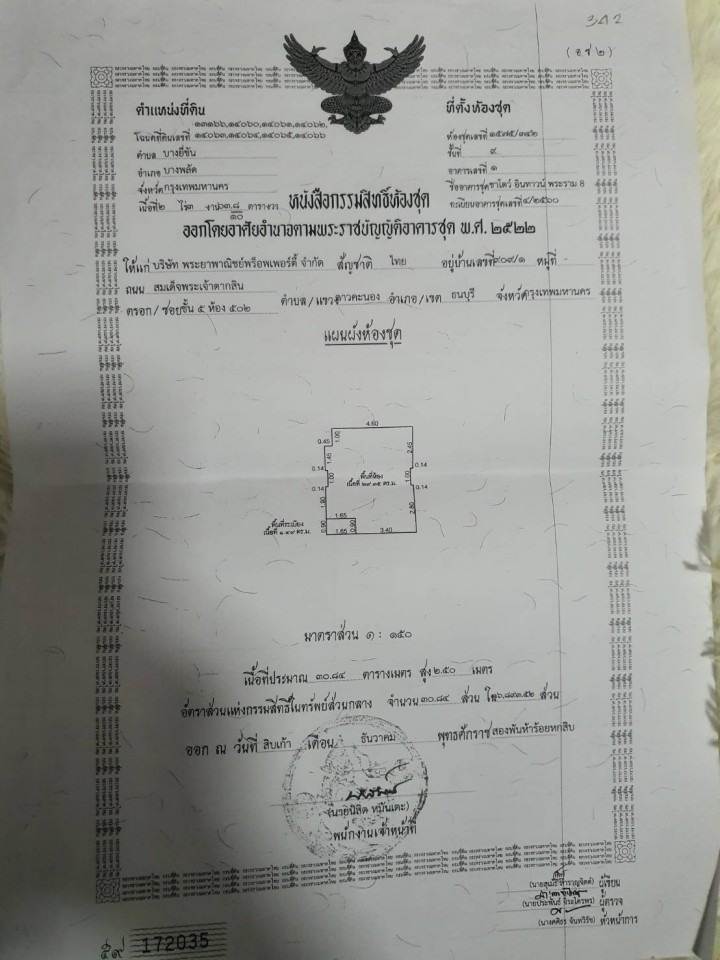 342
(อ.ช.๒)
ตำแหน่งที่ดิน
ที่ตั้งห้องชุด
๑๓๑๖๖,๑๔๐๖๐,๑๔๐๖๑,๑๔๐๖๒,
โฉนดที่ดินเลขที่ ๑๔๐๖๓,๑๔๐๖๔,๑๔๐๖๕,๑๔๐๖๖
ห้องชุดเลขที่ ๑๕๗๕/๓๔๒
ตำบล บางยี่ขัน
ชั้นที่ ๙
อำเภอ บางพลัด
อาคารเลขที่ ๑
จังหวัดกรุงเทพมหานคร
ชื่ออาคารชุดชาโตว์ อินทาวน์ พระราม 8
เนื้อที่๒ ไร่๓ งาน๐๓.๘/๑๐ ตารางวา
ทะเบียนอาคารชุดเลขที่๔/๒๕๖๐
หนังสือกรรมสิทธิ์ห้องชุด
ออกโดยอาศัยอำนาจตามพระราชบัญญัติอาคารชุด พ.ศ. ๒๕๒๒
ให้แก่ บริษัท พระยาพาณิชย์พร็อพเพอร์ตี้ จำกัด สัญชาติ ไทย อยู่บ้านเลขที่๙๐๙/๑ หมู่ที่ -
ถนน สมเด็จพระเจ้าตากสิน
ตรอก/ซอยชั้น ๕ ห้อง ๕๐๒ ตำบล/แขวงดาวคะนอง อำเภอ/เขต ธนบุรี จังหวัดกรุงเทพมหานคร
แผนผังห้องชุด
4.60
0.45
1.00
1.45
2.45
0.14
0.14
1.00
1.00
0.14
0.14
พื้นที่ห้อง
เนื้อที่ ๒๙.๓๕ ตร.ม.
1.90
2.80
1.65
พื้นที่ระเบียง
เนื้อที่ ๑.๔๙ ตร.ม.
0.90
0.90
1.65
3.40
มาตราส่วน ๑ : ๑๕๐
เนื้อที่ประมาณ ๓๐.๘๔ ตารางเมตร สูง๒.๕๐ เมตร
อัตราส่วนแห่งกรรมสิทธิ์ในทรัพย์ส่วนกลาง จำนวน๓๐.๘๔ ส่วน ใน๖,๘๙๓.๕๒ ส่วน
ออก ณ วันที่ สิบเก้า เดือน ธันวาคม พุทธศักราชสองพันห้าร้อยหกสิบ
(นายนิสิต หมันเตะ)
พนักงานเจ้าหน้าที่
(นายสุเมธ สำราญจิตต์) ผู้เขียน
(นายประพันธ์ จิระไตรพร) ผู้ตรวจ
(นางศศิธร จันทวิรัช) หัวหน้าการ
๕๙ 172035